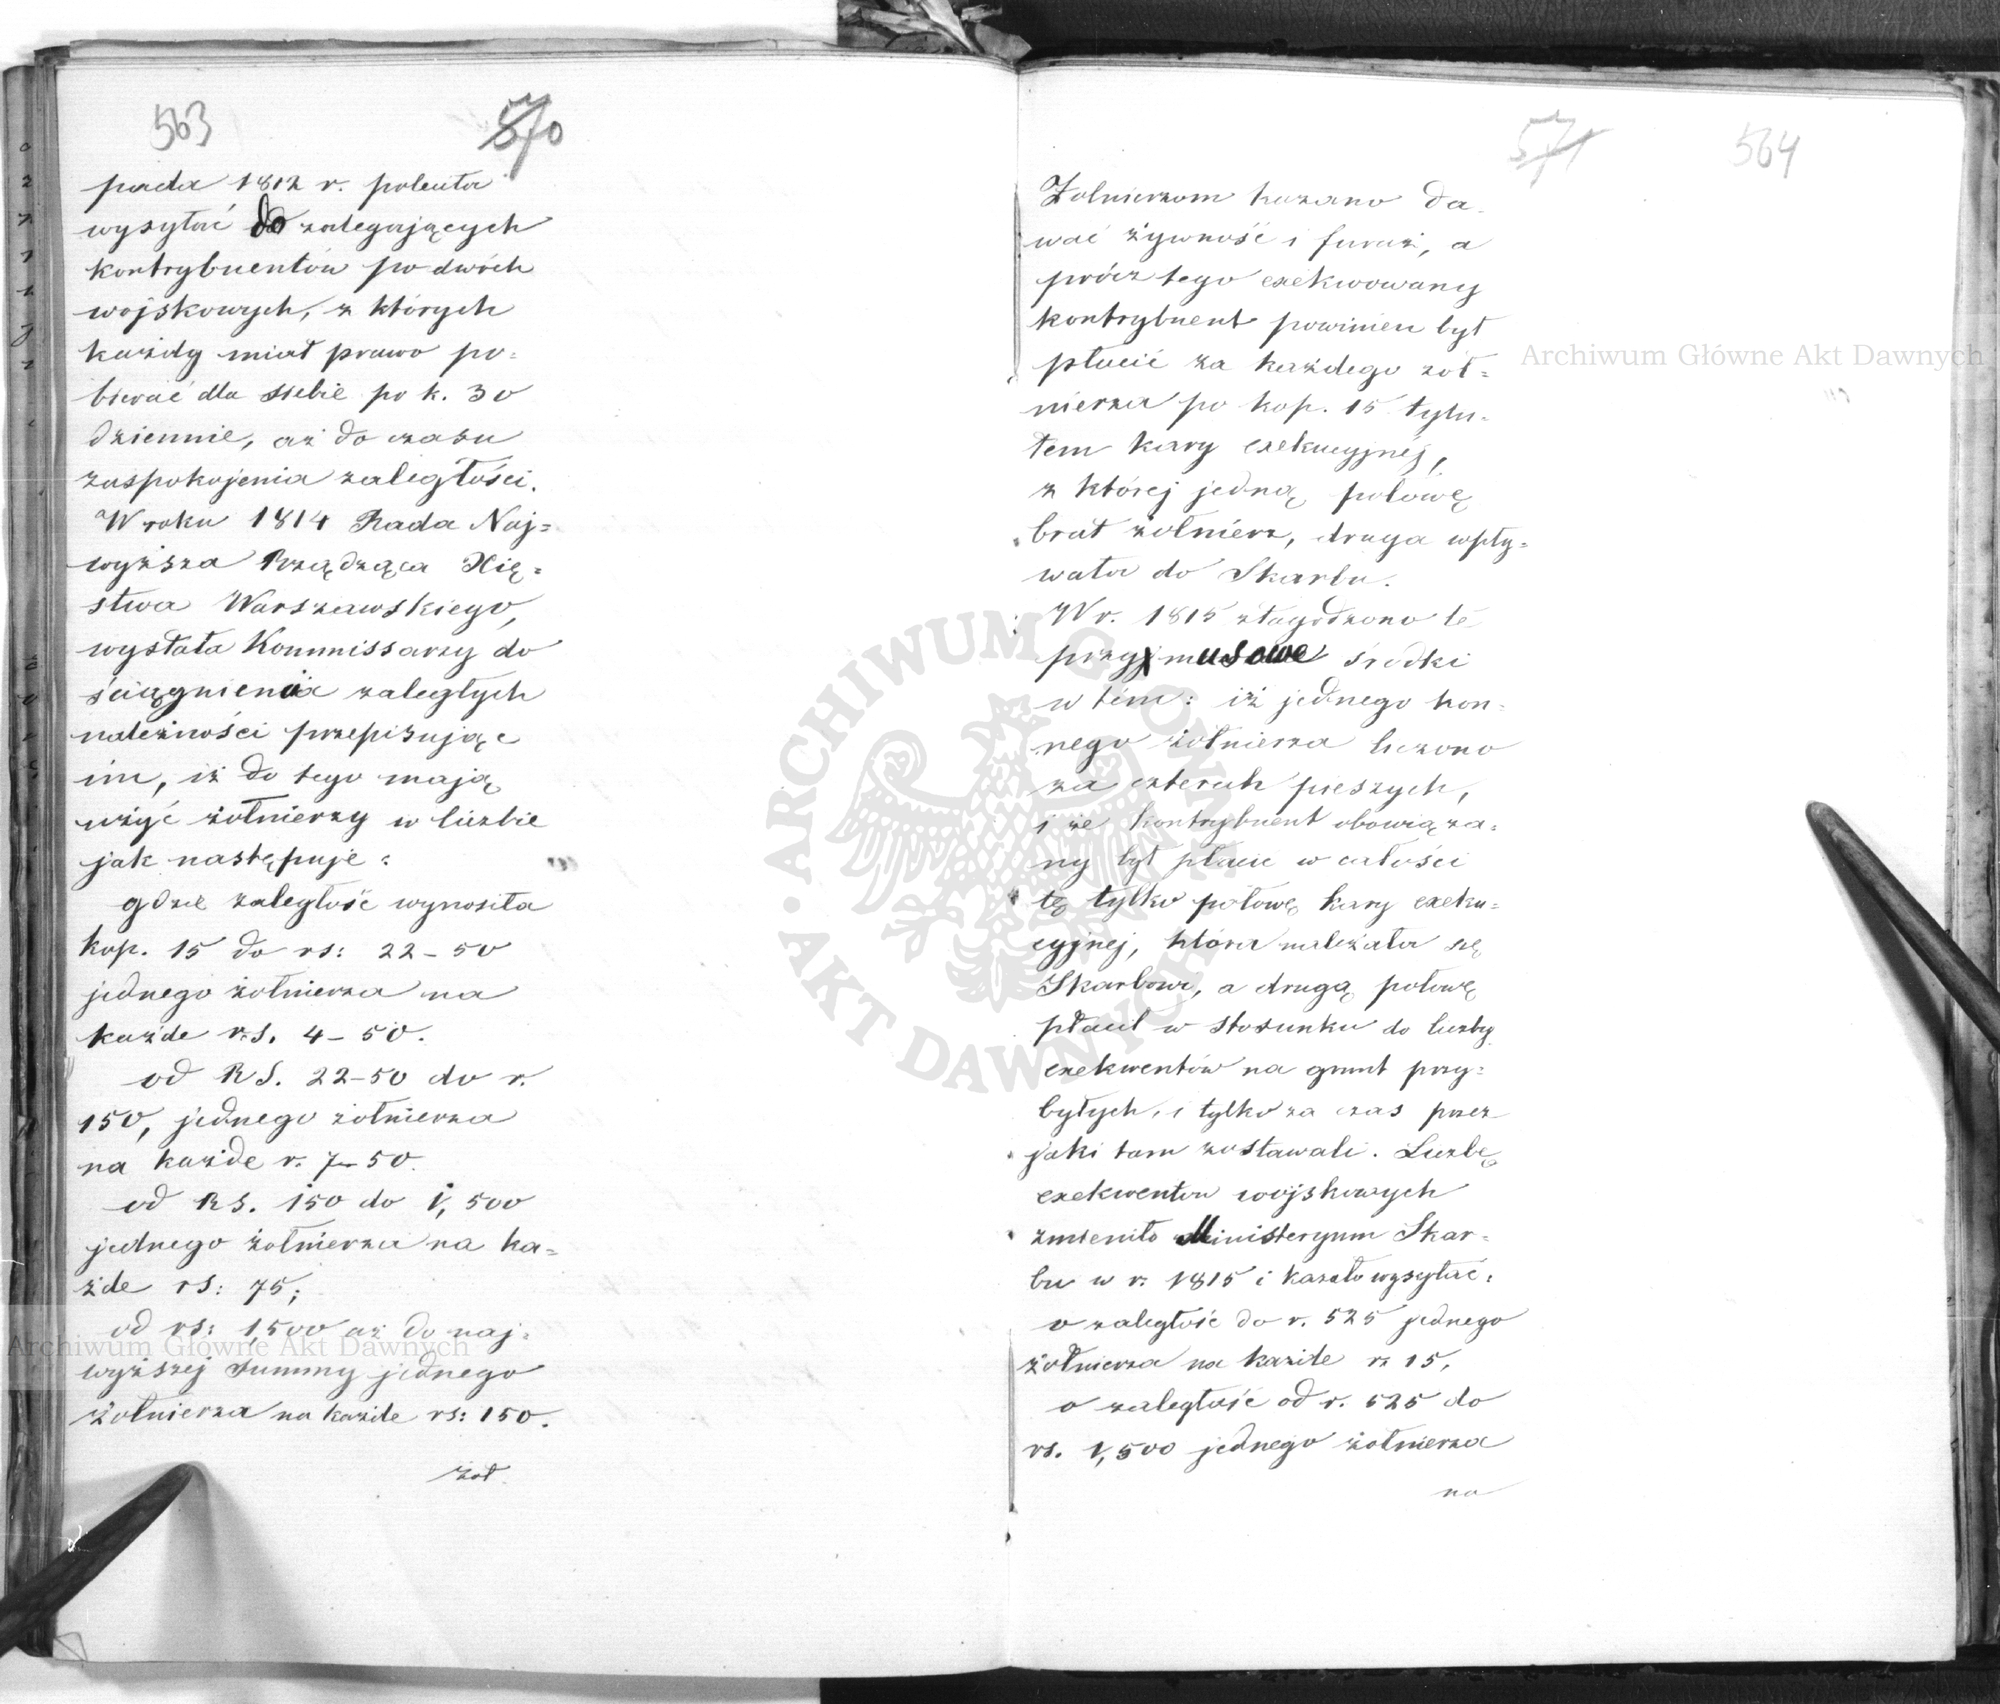 563
570
pada 1812 r. poleciła
wysyłać do zalegających
kontrybuentów po dwóch
wojskowych, z których
każdy miał prawo po=
bierać dla siebie po k. 30
dziennie, aż do czasu
zaspokojenia zaległości.
W roku 1814 Rada Naj=
wyższa Rządząca Xię=
stwa Warszawskiego,
wysłała Kommissarzy do
ściągnienia zaległych
należności przepisując
im, iż do tego mają
użyć żołnierzy w liczbie
jak następuje:
gdzie zaległość wynosiła
kop. 15 do rs: 22-50
jednego żołnierza na
każde r.s. 4-50.
od RS. 22-50 do r.
150, jednego żołnierza
na każde r. 7-50.
od RS. 150 do 1,500
jednego żołnierza na ka=
żde rs: 75;
od rs: 1,500 aż do naj=
wyższej summy jednego
żołnierza na każde rs: 150.
żoł
571
564
Żołnierzom kazano da=
wać żywność i furaż, a
prócz tego exekwowany
kontrybuent powinien był
płacić za każdego żoł=
nierza po kop. 15 tytu=
łem kary exekucyjnéj,
z której jedną połowę
brał żołnierz, druga wpły=
wała do Skarbu.
W r. 1815 złagodzono te
przymusowe środki
w tém: iż jednego kon=
nego żołnierza liczono
za czterech pieszych,
i że kontrybuent obowiąza=
ny był płacić w całości
tę tylko połowę kary exeku=
cyjnej, która należała się
Skarbowi, a drugą połowę
płacił w stosunku do liczby
exekwentów na grunt przy=
byłych, i tylko za czas przez
jaki tam zostawali. Liczbę
exekwentów wojskowych
zmieniło Ministeryum Skar=
bu w r. 1815 i kazało wysyłać:
o zaległość do r. 525 jednego
żołnierza na każde rs 15,
o zaległość od r. 525 do
rs. 1,500 jednego żołnierza
na
Archiwum Główne Akt Dawnych
Archiwum Główne Akt Dawnych
ARCHIWUM GŁÓWNE
AKT DAWNYCH